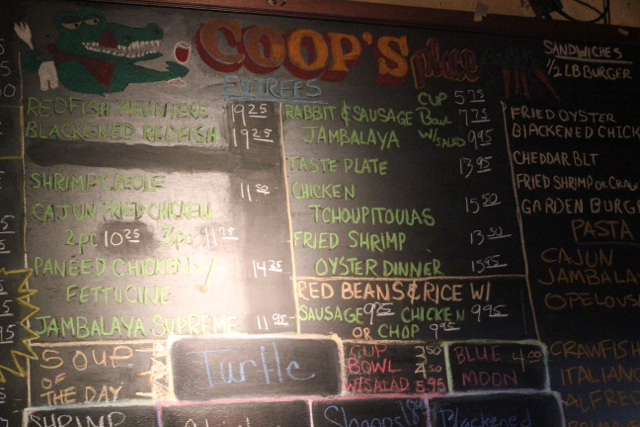 COOP'S place
ENTREES
REDFISH MEUNIERE 19.25
BLACKENED REDFISH 19.25
SHRIMP CREOLE 11.50
CAJUN FRIED CHICKEN
2pc 10.25 3pc
PANEED CHICKEN w/ 14.25
FETTUCINE
JAMBALAYA SUPREME 11.95
RABBIT & SAUSAGE CUP 5.75
JAMBALAYA Bowl 7.75
W/SALAD 9.95
TASTE PLATE 13.95
CHICKEN
TCHOUPITOULAS 15.50
FRIED SHRIMP 13.50
OYSTER DINNER 15.95
RED BEANS & RICE W/
SAUSAGE 9.25 CHICKEN 9.95
OR CHOP 9.95
SANDWICHES
1/2 LB BURGER
FRIED OYSTER
BLACKENED CHICK
CHEDDAR BLT
FRIED SHRIMP or CRAW
GARDEN BURG
PASTA
CAJUN
JAMBALA
OPELOUS
CRAWFISH
ITALIANO
ALFRED
SOUP
OF
THE DAY
Turtle
CUP 4.50
BOWL
W/SALAD 5.95
BLUE 4.00
MOON
SHRIMP
Blackened